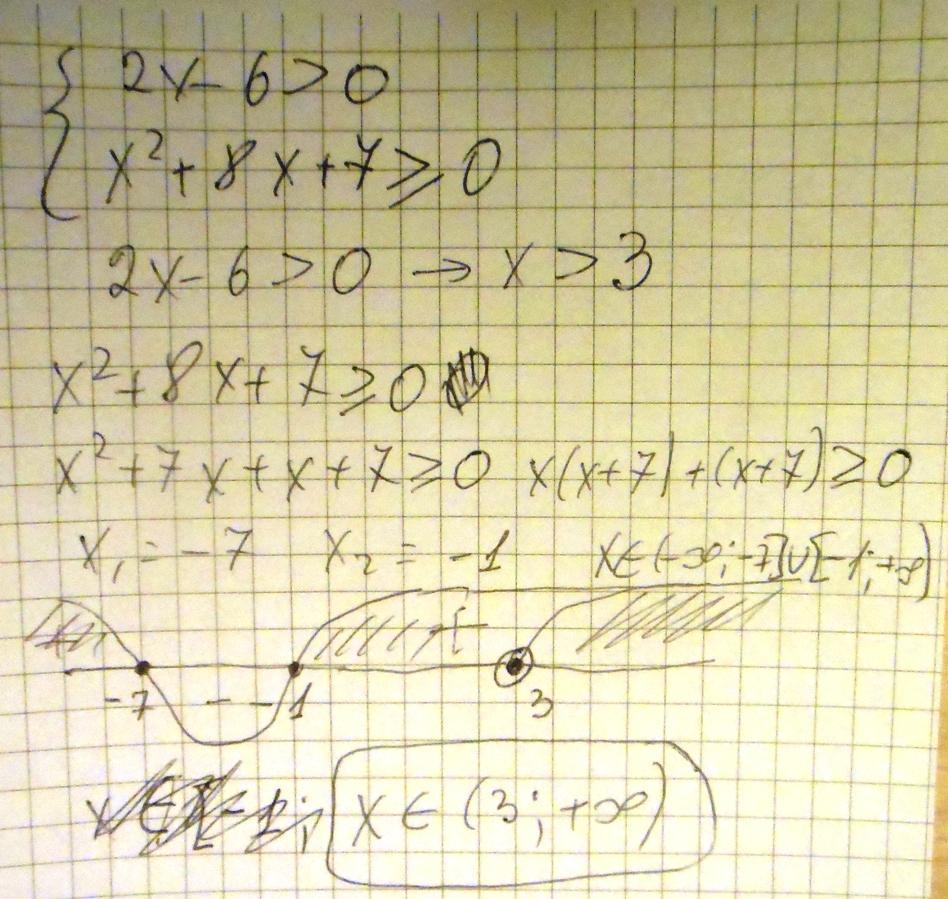 { 2x - 6 > 0
x² + 8x + 7 ≥ 0
2x - 6 > 0 → x > 3
x² + 8x + 7 ≥ 0
x² + 7x + x + 7 ≥ 0 x(x+7) + (x+7) ≥ 0
x₁ = -7 x₂ = -1 x∈(-∞; -7]∪[-1; +∞)
+
-7 - -1 3
x ∈ (3; +∞)